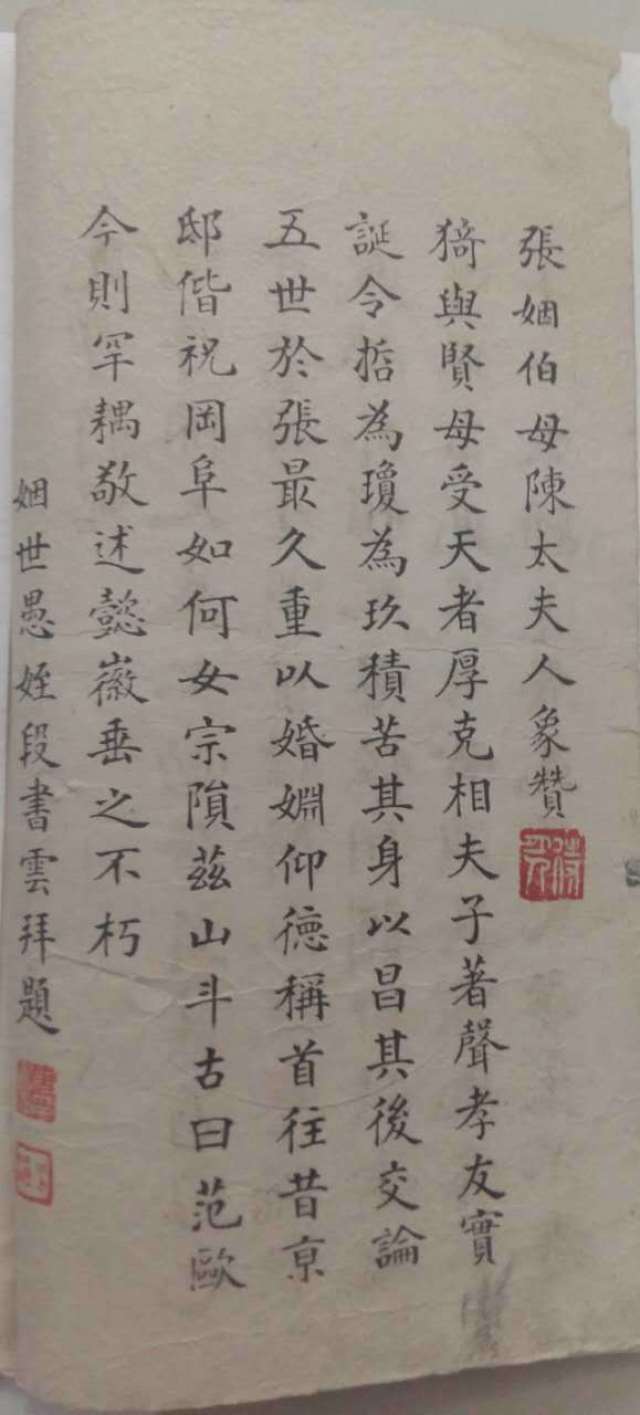 張姻伯母陳太夫人象贊
猗與賢母受天者厚克相夫子著聲孝友實
誕令哲為瓊為玖積苦其身以昌其後交論
五世於張最久重以婚婣仰德稱首往昔京
邸偕祝岡阜如何女宗隕茲山斗古曰范歐
今則罕耦敬述懿徽垂之不朽
姻世愚姪段書雲拜題